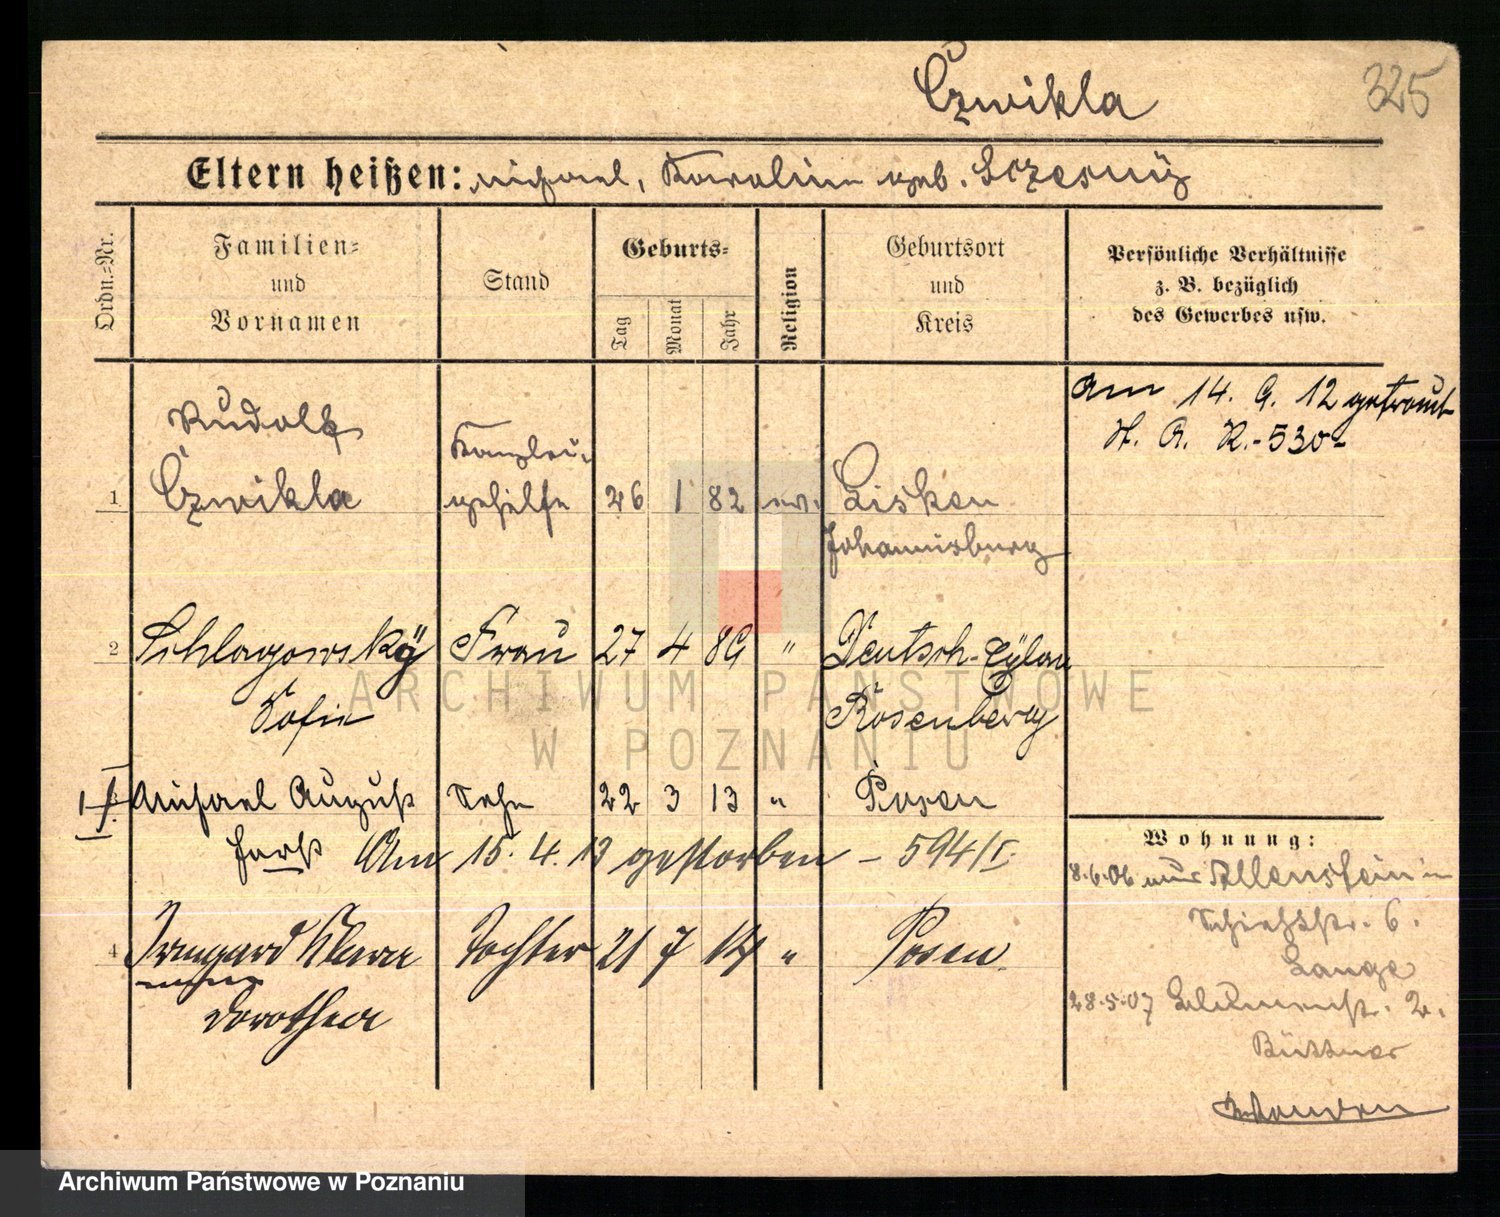 Czwikla
325
Eltern heißen: Michael, Karoline geb. Sczesny
Ordn.=Nr.
Familien=
und
Vornamen
Stand
Geburts=
Tag
Monat
Jahr
Religion
Geburtsort
und
Kreis
Persönliche Verhältnisse
z. B. bezüglich
des Gewerbes usw.
Am 14. 9. 12 getraut
H. A. R. - 530 -
Rudolf
Kanzlei-
1 Czwikla gehilfe 26 1 82 ev. Lisken
Johannisburg
2 Schlagowsky Frau 27 4 89 " Deutsch-Eylau
Sofie Rosenberg
Michael August Sohn 22 3 13 " Posen
Horst Am 15. 4. 13 gestorben - 594/I.
4 Irmgard Klara Tochter 21 7 14 " Posen
Dorothea
Wohnung:
8.6.06 aus Allenstein in
Schießstr. 6.
Lange
28.5.07 Blumenstr. 2.
Büttner
ARCHIWUM PAŃSTWOWE
W POZNANIU
Archiwum Państwowe w Poznaniu